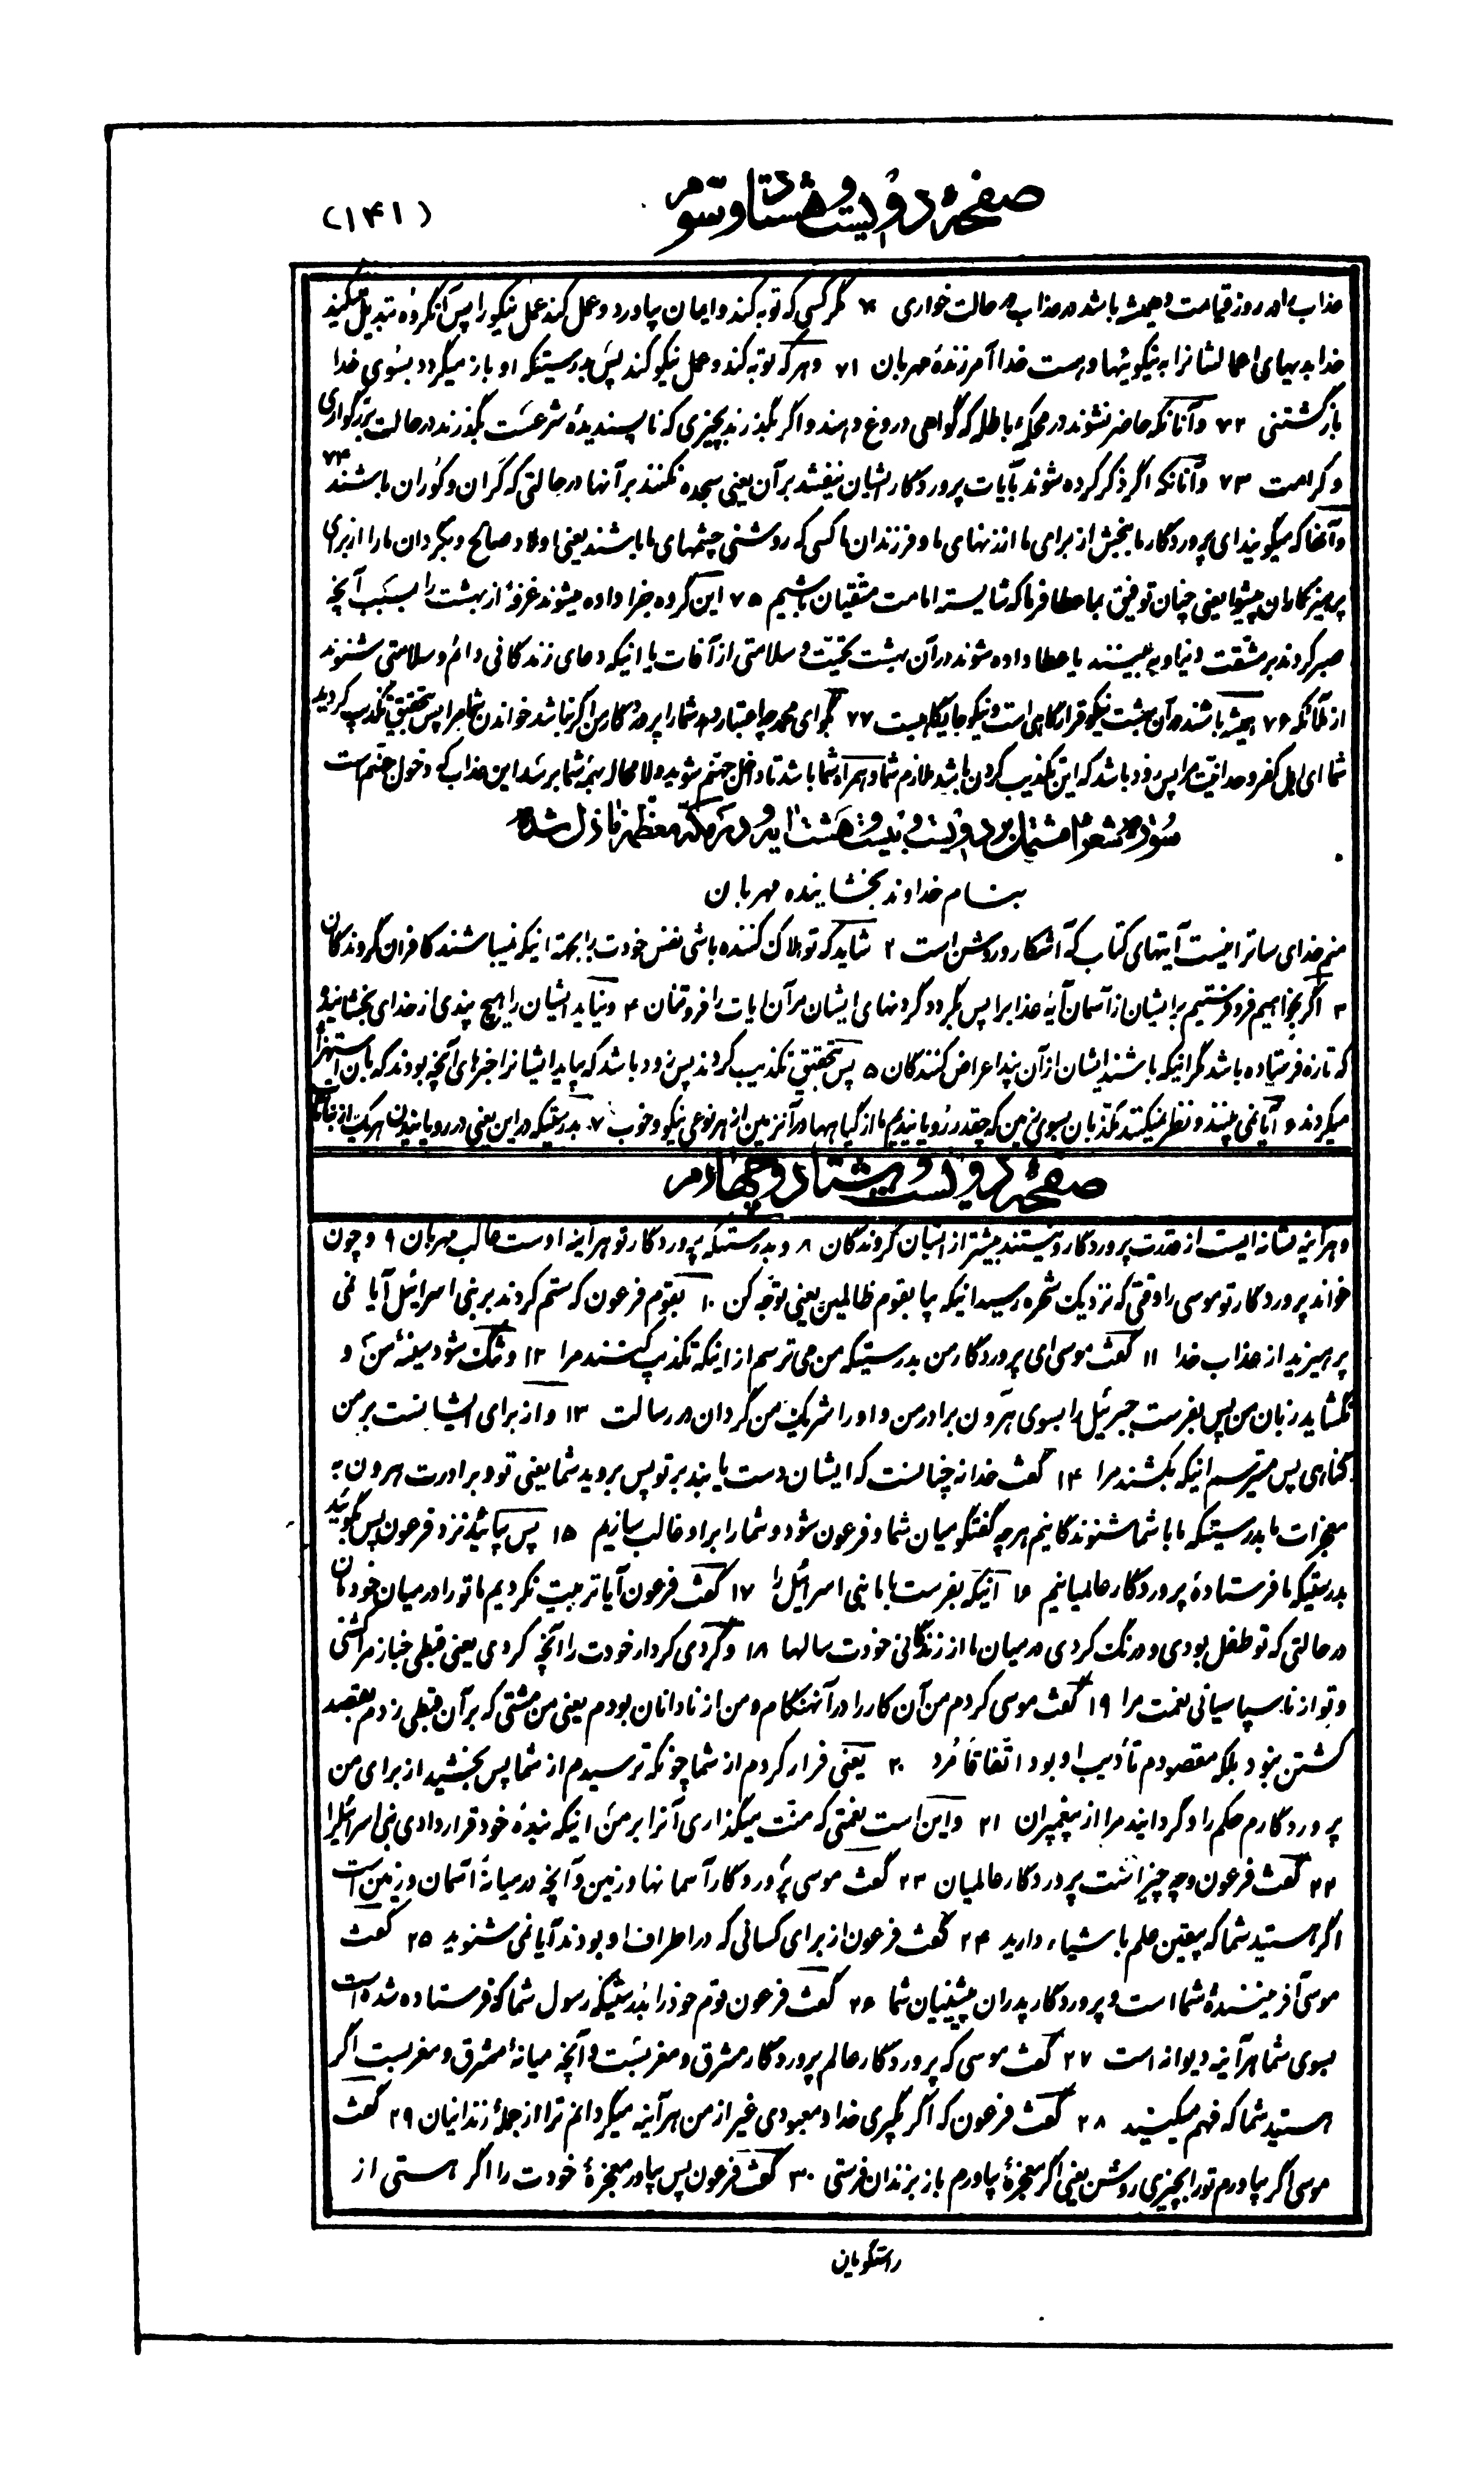 صفحۀ دویست و هشتاد و سوم
(۱۴۱)
عذاب در روز قیامت و همیشه باشد در عذاب در حالت خواری ۷۰ مگر کسی که توبه کند و ایمان بیاورد و عمل کند عمل نیکو را پس آنگروه تبدیل میکند
خدا بدیهای اعمالشانرا به نیکوئیها و هست خدا آمرزندۀ مهربان ۷۱ و هرکه توبه کند و عمل نیکو کند پس بدرستیکه او باز میگردد بسوی خدا
بازگشتنی ۷۲ و آنانکه حاضر نشوند در محکمه باطله که گواهی دروغ دهند و اگر بگذرند بچیزی که ناپسندیدۀ شرعست بگذرند در حالت بزرگواری
و کرامت ۷۳ و آنانکه اگر ذکر کرده شوند بآیات پروردگار ایشان نیفتند بر آن یعنی سجده نکنند بر آنها در حالتی که کران و کوران باشند ۷۴
و آنها که میگویند ای پروردگار ما ببخش از برای ما از زنهای ما و فرزندان ما کسی که روشنی چشمهای ما باشند یعنی اولاد صالح و بگردان ما را از برای
پرهیزکاران پیشوا یعنی چنان توفیق بما عطا فرما که شایسته امامت متقیان باشیم ۷۵ این گروه جزا داده میشوند غرفۀ از بهشت را بسبب آنچه
صبر کردند بر مشقت دنیا و به بینند یا عطا داده شوند در آن بهشت تحیّت و سلامتی از آفات یا اینکه دعای زندگانی دائم و سلامتی شنوند
از ملائکه ۷۶ همیشه باشند در آن بهشت نیکو قرارگاهی است و نیکو جایگاهیست ۷۷ بگو ای محمد چه اعتبار دهد شما را پروردگار من اگر نباشد خواندن شما مرا پس بتحقیق تکذیب کردید
شما ای اهل کفر وحدانیّت مرا پس زود باشد که این تکذیب کردن باشد ملازم شما و همراه شما باشد تا داخل جهنم شوید و لامحاله بشما برسد این عذاب که دخول جهنم است
سورۀ شعرا مشتمل بر دویست و بیست و هشت آیه و در مکّه معظّمه نازل شده
بنام خداوند بخشاینده مهربان
منم خدای ساتر اینست آیتهای کتاب که آشکار و روشن است ۲ شاید که تو هلاک کننده باشی نفس خودت را بجهة اینکه نمیباشند کافران گروندگان
۳ اگر بخواهیم فرو فرستیم بر ایشان از آسمان آیۀ عذاب را پس بگردد گردنهای ایشان مر آن ایات را فروتنان ۴ و نیاید ایشان را هیچ پندی از خدای بخشاینده
که تازه فرستاده باشد مگر اینکه باشند ایشان از آن پند اعراض کنندگان ۵ پس بتحقیق تکذیب کردند پس زود باشد که بیاید ایشانرا خبرهای آنچه بودند که بآن استهزاء
میکردند ۶ آیا نمی بینند و نظر نمیکنند مکذبان بسوی زمین که چقدر رویانیدیم ما از گیاهها در آن زمین از هر نوعی نیکو و خوب ۷ بدرستیکه در این یعنی در رویانیدن هر یک از نباتات
صفحۀ دویست و هشتاد و چهارم
هرآینه نشانه ایست از قدرت پروردگار و نیستند بیشتر از ایشان گروندگان ۸ و بدرستیکه پروردگار تو هرآینه اوست غالب مهربان ۹ و چون
خواند پروردگار تو موسی را وقتی که نزدیک شجره رسید اینکه بیا بقوم ظالمین یعنی توجّه کن ۱۰ بقوم فرعون که ستم کردند بر بنی اسرائیل آیا نمی
پرهیزید از عذاب خدا ۱۱ گفت موسی ای پروردگار من بدرستیکه من می ترسم از اینکه تکذیب کنند مرا ۱۲ و تنگ شود سینۀ من و
نگشاید زبان من پس بفرست جبرئیل را بسوی هرون برادر من و او را شریک من گردان در رسالت ۱۳ و از برای ایشانست بر من
گناهی پس میترسم اینکه بکشند مرا ۱۴ گفت خدا نه چنانست که ایشان دست یابند بر تو پس بروید شما یعنی تو و برادرت هرون به
معجزات ما بدرستیکه ما با شما شنوندگانیم هر چه گفتگو میان شما و فرعون شود و شما را بر او غالب سازیم ۱۵ پس بیائید نزد فرعون پس بگوئید
بدرستیکه ما فرستادۀ پروردگار عالمیانیم ۱۶ آنیکه بفرست با ما بنی اسرائیل را ۱۷ گفت فرعون آیا تربیت نکردیم ما تو را در میان خودمان
در حالتی که تو طفل بودی و درنگ کردی در میان ما از زندگانی خودت سالها ۱۸ و کردی کردار خودت را آنچه کردی یعنی قبطی خباز مرا کشتی
و تو از ناسپاسانی نعمت مرا ۱۹ گفت موسی کردم من آن کار را در آنهنگام و من از نادانان بودم یعنی من مشتی که بر آن قبطی زدم بقصد
کشتن نبود بلکه مقصودم تأدیب او بود اتفاقا مُرد ۲۰ یعنی فرار کردم از شما چونکه ترسیدم از شما پس بخشید از برای من
پروردگارم حکم را و گردانید مرا از پیغمبران ۲۱ و این است نعمتی که منّت میگذاری آنرا بر من اینکه بندۀ خود قرار دادی بنی اسرائیلرا
۲۲ گفت فرعون و چه چیز است پروردگار عالمیان ۲۳ گفت موسی پروردگار آسمانها و زمین و آنچه در میانۀ آسمان و زمین است
اگر هستید شما که بیقین علم باشیاء دارید ۲۴ گفت فرعون از برای کسانی که در اطراف او بودند آیا نمی شنوید ۲۵ گفت
موسی آفریننـدۀ شما است و پروردگار پدران پیشینیان شما ۲۶ گفت فرعون قوم خود را بدرستیکه رسول شما که فرستاده شده است
بسوی شما هرآینه دیوانه است ۲۷ گفت موسی که پروردگار عالم پروردگار مشرق و مغربست و آنچه میانۀ مشرق و مغربست اگر
هستید شما که فهم میکنید ۲۸ گفت فرعون که اگر بگیری خدا و معبودی غیر از من هرآینه میگردانم ترا از جملۀ زندانیان ۲۹ گفت
موسی اگر بیاورم تو را بچیزی روشن یعنی اگر معجزۀ بیاورم باز بزندان فرستی ۳۰ گفت فرعون پس بیاور معجزۀ خودت را اگر هستی از
راستگویان